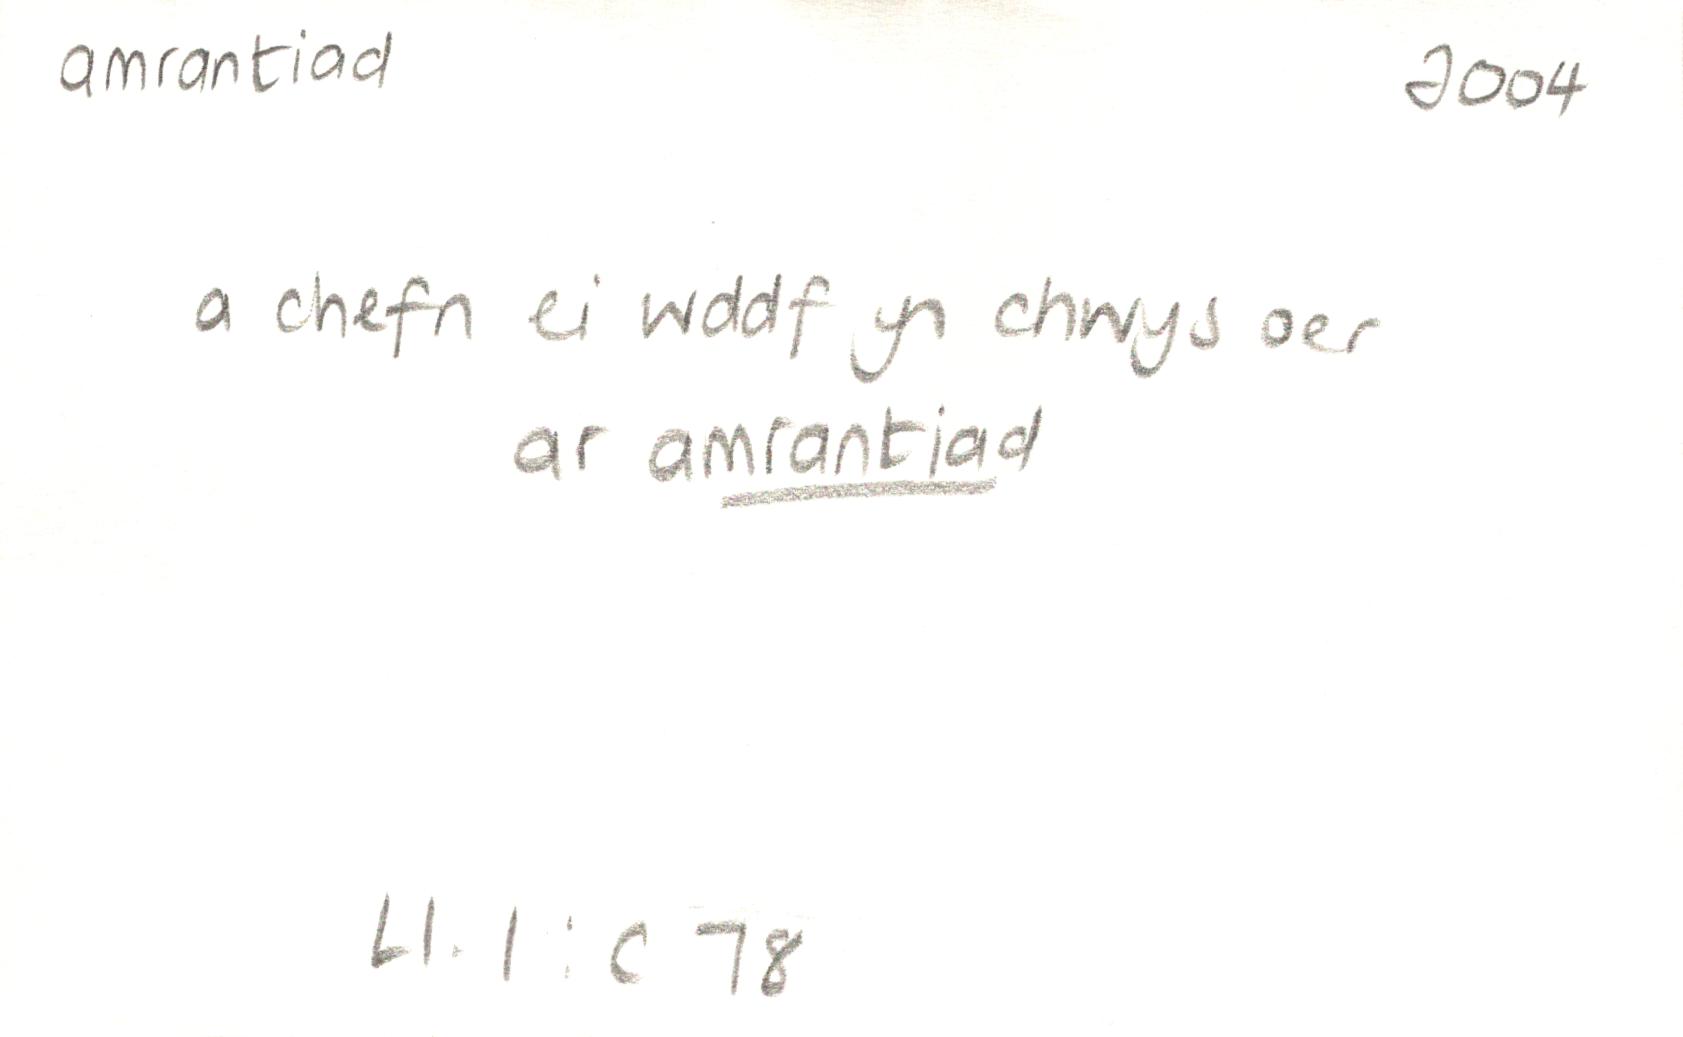 amrantiad 2004
a chefn ei wddf yn chwys oer
ar amrantiad
Ll. I : C 78